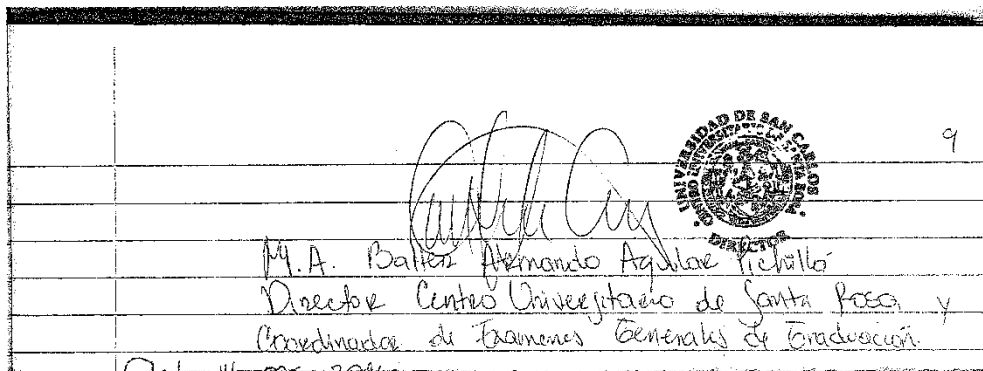 9
UNIVERSIDAD DE SAN CARLOS
CENTRO UNIVERSITARIO DE SANTA ROSA
DIRECTOR
M.A. Armando Aguilar
Director Centro Universitario de Santa Rosa y
Coordinador de Examenes Generales de Graduación.